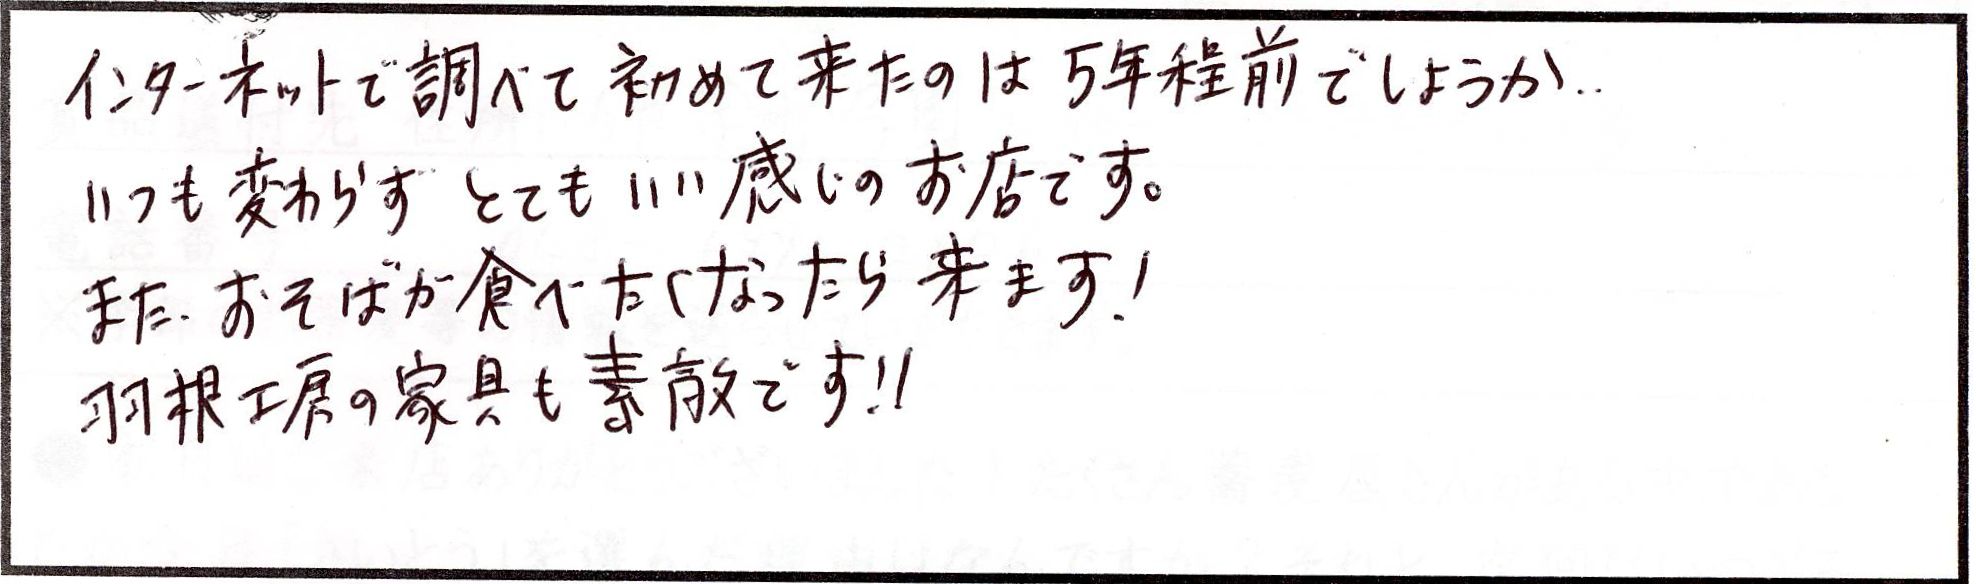 インターネットで調べて初めて来たのは5年程前でしょうか..
いつも変わらず とてもいい感じのお店です。
また.おそばが食べたくなったら来ます!
羽根工房の家具も素敵です!!